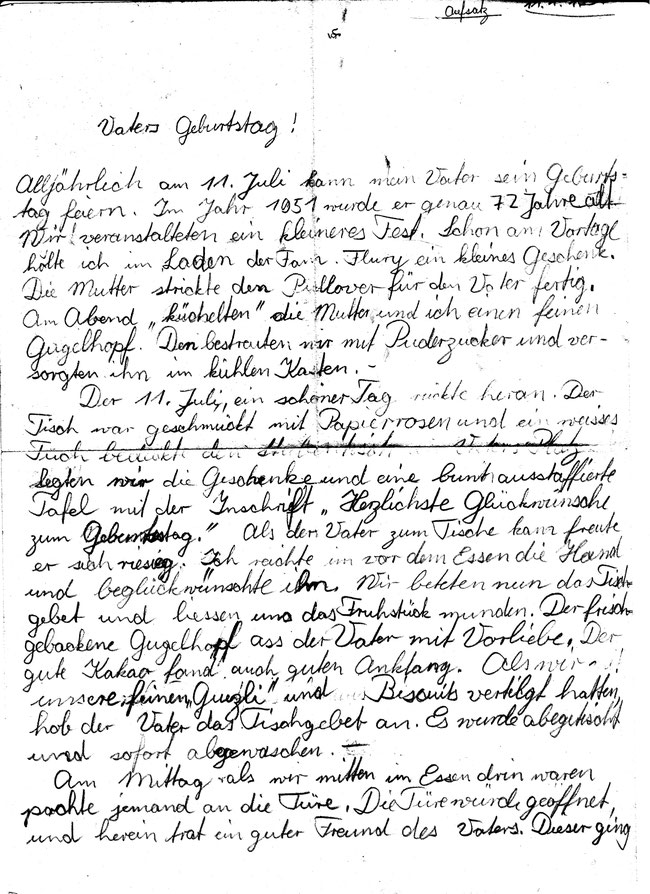 Aufsatz
Vaters Geburtstag!
Alljährlich am 11. Juli kann mein Vater sein Geburts-
tag feiern. Im Jahr 1951 wurde er genau 72 Jahre alt
Wir veranstalteten ein kleineres Fest. Schon am Vortage
holte ich im Laden der Fam. Flury ein kleines Geschenk.
Die Mutter strickte den Pullover für den Vater fertig.
Am Abend „küchelten" die Mutter und ich einen feinen
Gugelhopf. Den bestreuten wir mit Puderzucker und ver-
sorgten ihn im kühlen Kasten. -
Der 11. Juli, ein schöner Tag rückte heran. Der
Tisch war geschmückt mit Papierrosen und ein weisses
Tuch den Vaters Platz
legten wir die Geschenke und eine bunt ausstaffierte
Tafel mit der Inschrift „Herzlichste Glückwünsche
zum Geburtstag." Als der Vater zum Tische kam freute
er sich riesig. Ich reichte im vor dem Essen die Hand
und beglückwünschte ihn. Wir beteten nun das Tisch-
gebet und liessen uns das Frühstück munden. Der frisch-
gebackene Gugelhopf ass der Vater mit Vorliebe. Der
gute Kakao fand auch guten Anklang. Als wir
unsere feinen „Guzli" und Biscuits vertilgt hatten,
hob der Vater das Tischgebet an. Es wurde abgetischt
und sofort abgewaschen. -
Am Mittag als wir mitten im Essen drin waren
pochte jemand an die Türe. Die Türe würde geöffnet,
und herein trat ein guter Freund des Vaters. Dieser ging